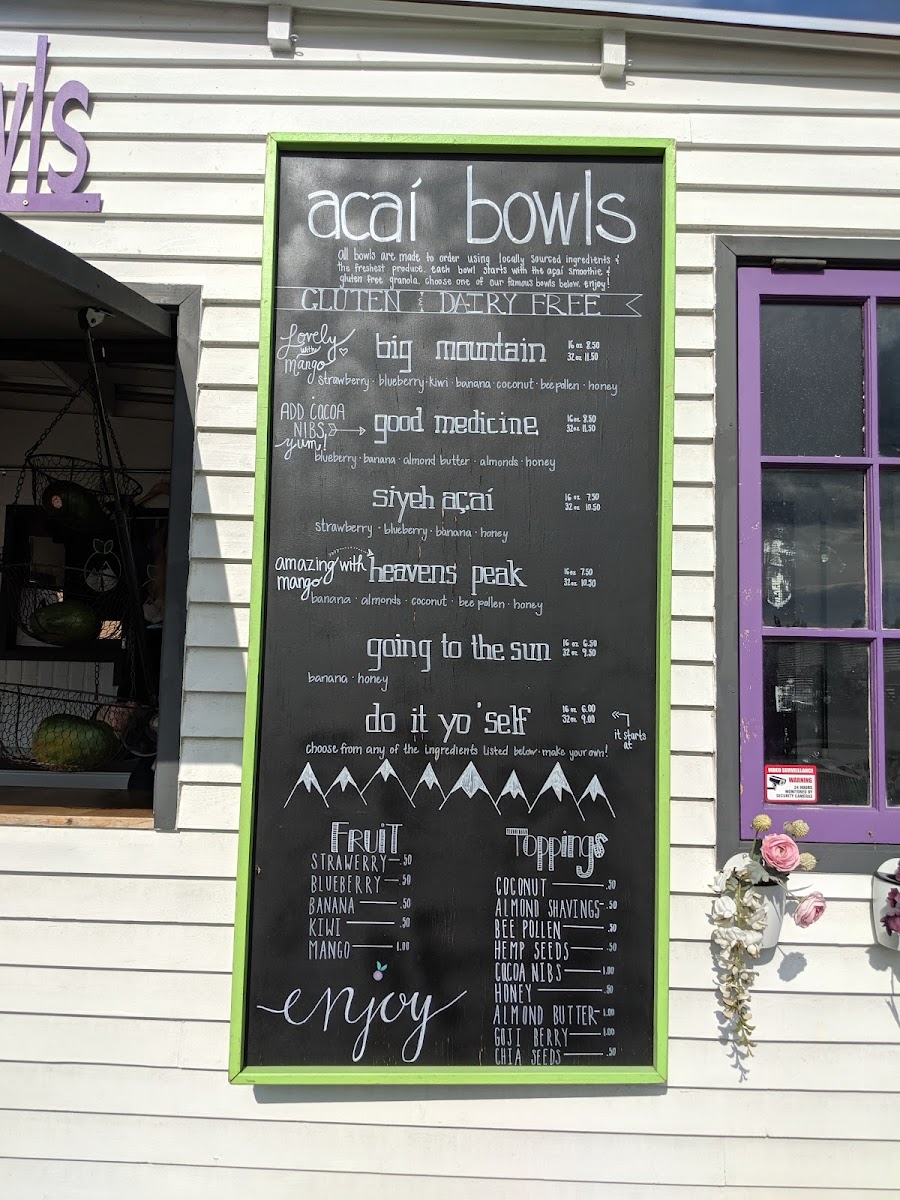 wls
acaí bowls
all bowls are made to order using locally sourced ingredients &
the freshest produce. each bowl starts with the açaí smoothie &
gluten free granola. choose one of our famous bowls below. enjoy!
GLUTEN & DAIRY FREE
Lovely
with
mango
big mountain
16 oz 8.50
32 oz 11.50
strawberry · blueberry · kiwi · banana · coconut · bee pollen · honey
ADD COCOA
NIBS,
yum!
good medicine
16 oz 8.50
32 oz 11.50
blueberry · banana · almond butter · almonds · honey
siyeh açaí
16 oz 7.50
32 oz 10.50
strawberry · blueberry · banana · honey
amazing with
mango
heavens peak
16 oz 7.50
32 oz 10.50
banana · almonds · coconut · bee pollen · honey
going to the sun
16 oz 6.50
32 oz 9.50
banana · honey
do it yo'self
16 oz 6.00
32 oz 9.00
it starts
at
choose from any of the ingredients listed below · make your own!
FRUIT
STRAWERRY — .50
BLUEBERRY — .50
BANANA — .50
KIWI — .50
MANGO — 1.00
enjoy
Toppings
COCONUT — .50
ALMOND SHAVINGS - .50
BEE POLLEN — .50
HEMP SEEDS — .50
COCOA NIBS — 1.00
HONEY — .50
ALMOND BUTTER - 1.00
GOJI BERRY — 1.00
CHIA SEEDS — .50
VIDEO SURVEILLANCE
WARNING
24 HOURS
MONITORED BY
SECURITY CAMERAS